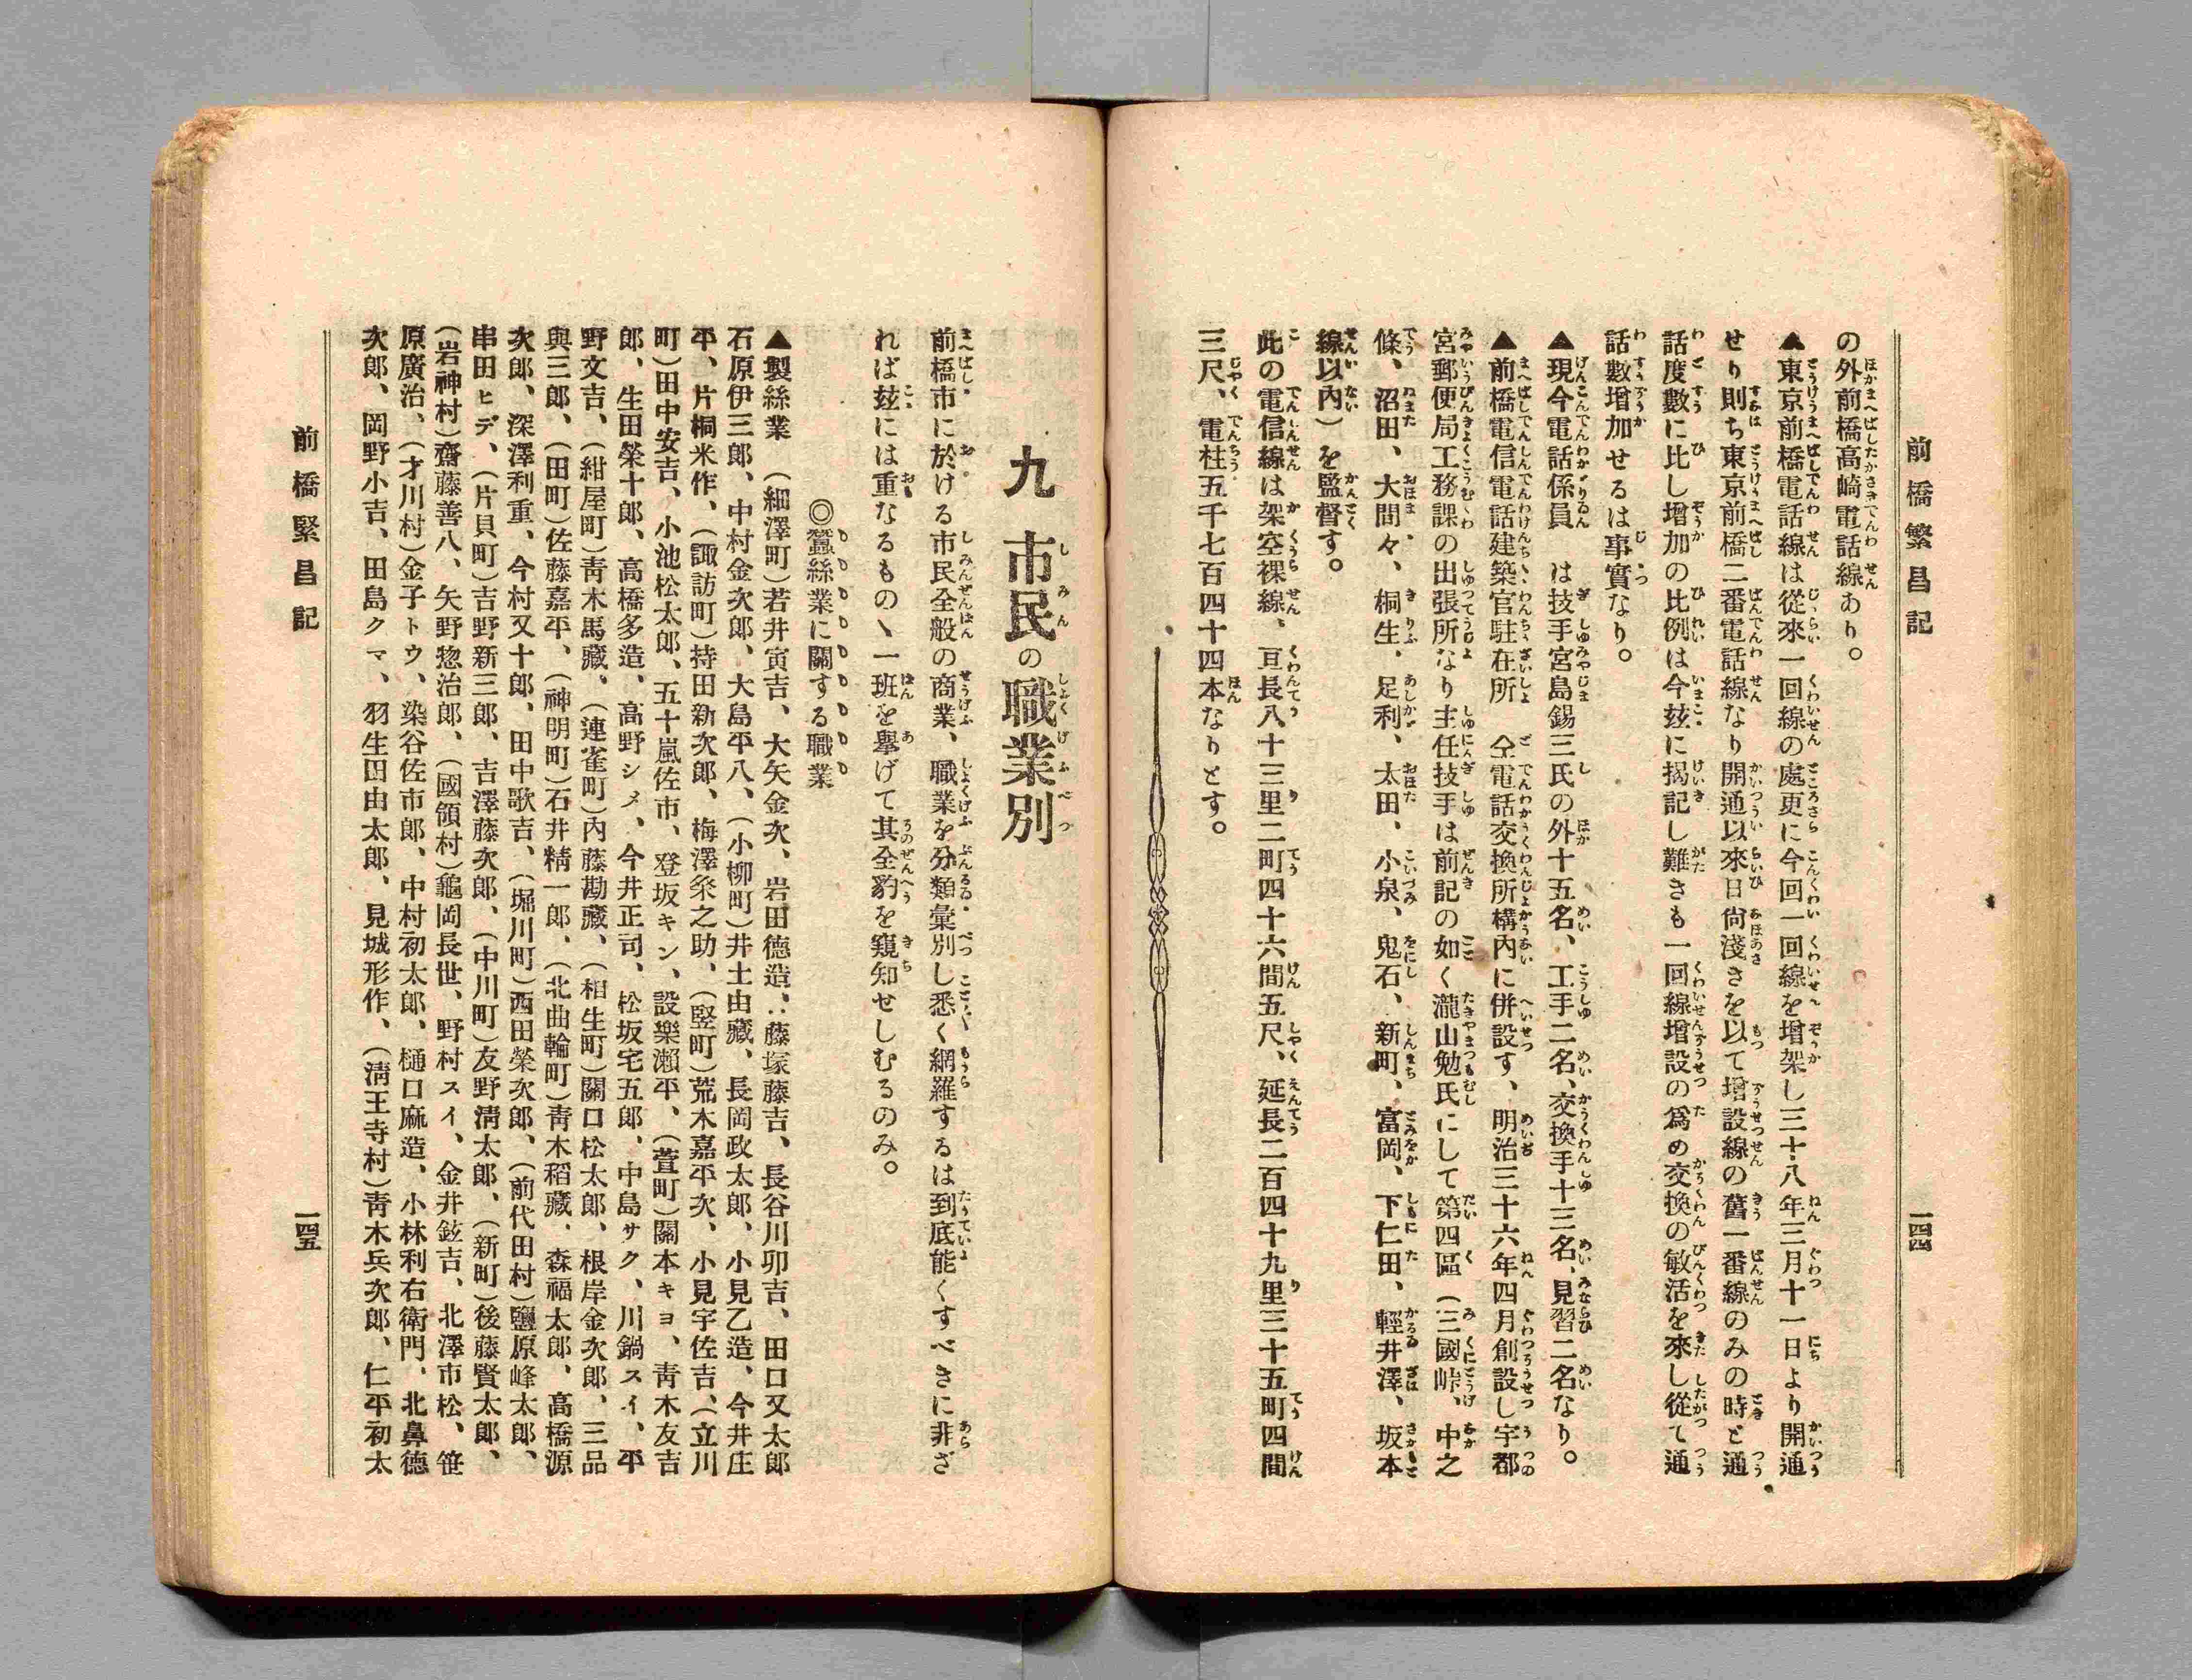 前橋繁昌記
一四四
の外前橋高崎電話線あり。
▲東京前橋電話線は從來一回線の處更に今回一回線を增架し三十八年三月十一日より開通
せり則ち東京前橋二番電話線なり開通以來日尙淺きを以て增設線の舊一番線のみの時と通
話度數に比し增加の比例は今玆に揭記し難きも一回線增設の爲め交換の敏活を來し從て通
話數增加せるは事實なり。
▲現今電話係員　は技手宮島錫三氏の外十五名、工手二名、交換手十三名、見習二名なり。
▲前橋電信電話建築官駐在所　仝電話交換所構內に併設す、明治三十六年四月創設し宇都
宮郵便局工務課の出張所なり主任技手は前記の如く瀧山勉氏にして第四區（三國峠、中之
條、沼田、大間々、桐生、足利、太田、小泉、鬼石、新町、富岡、下仁田、輕井澤、坂本
線以內）を監督す。
此の電信線は架空裸線、亘長八十三里二町四十六間五尺、延長二百四十九里三十五町四間
三尺、電柱五千七百四十四本なりとす。
九　市民の職業別
前橋市に於ける市民全般の商業、職業を分類彙別し悉く網羅するは到底能くすべきに非ざ
れば玆には重なるもの丶一班を擧げて其全豹を窺知せしむるのみ。
◎蠶絲業に關する職業
▲製絲業　（細澤町）若井寅吉、大矢金次、岩田德造、藤塚藤吉、長谷川卯吉、田口又太郎
石原伊三郎、中村金次郎、大島平八、（小柳町）井土由藏、長岡政太郎、小見乙造、今井庄
平、片桐米作、（諏訪町）持田新次郎、梅澤粂之助、（竪町）荒木嘉平次、小見宇佐吉、（立川
町）田中安吉、小池松太郎、五十嵐佐市、登坂キン、設樂瀨平、（萱町）關本キヨ、靑木友吉
郎、生田榮十郎、高橋多造、高野シメ、今井正司、松坂宅五郎、中島サク、川鍋スイ、平
野文吉、（紺屋町）靑木馬藏、（連雀町）內藤勘藏、（相生町）關口松太郎、根岸金次郎、三品
與三郎、（田町）佐藤嘉平、（神明町）石井精一郎、（北曲輪町）靑木稻藏、森福太郎、高橋源
次郎、深澤利重、今村又十郎、田中歌吉、（堀川町）西田榮次郎、（前代田村）鹽原峰太郎、
串田ヒデ、（片貝町）吉野新三郎、吉澤藤次郎、（中川町）友野淸太郎、（新町）後藤賢太郎、
（岩神村）齋藤善八、矢野惣治郎、（國領村）龜岡長世、野村スイ、金井鉉吉、北澤市松、笹
原廣治、（才川村）金子トウ、染谷佐市郎、中村初太郎、樋口麻造、小林利右衛門、北鼻德
次郎、岡野小吉、田島クマ、羽生田由太郎、見城形作、（淸王寺村）靑木兵次郎、仁平初太
前橋緊昌記
一四五